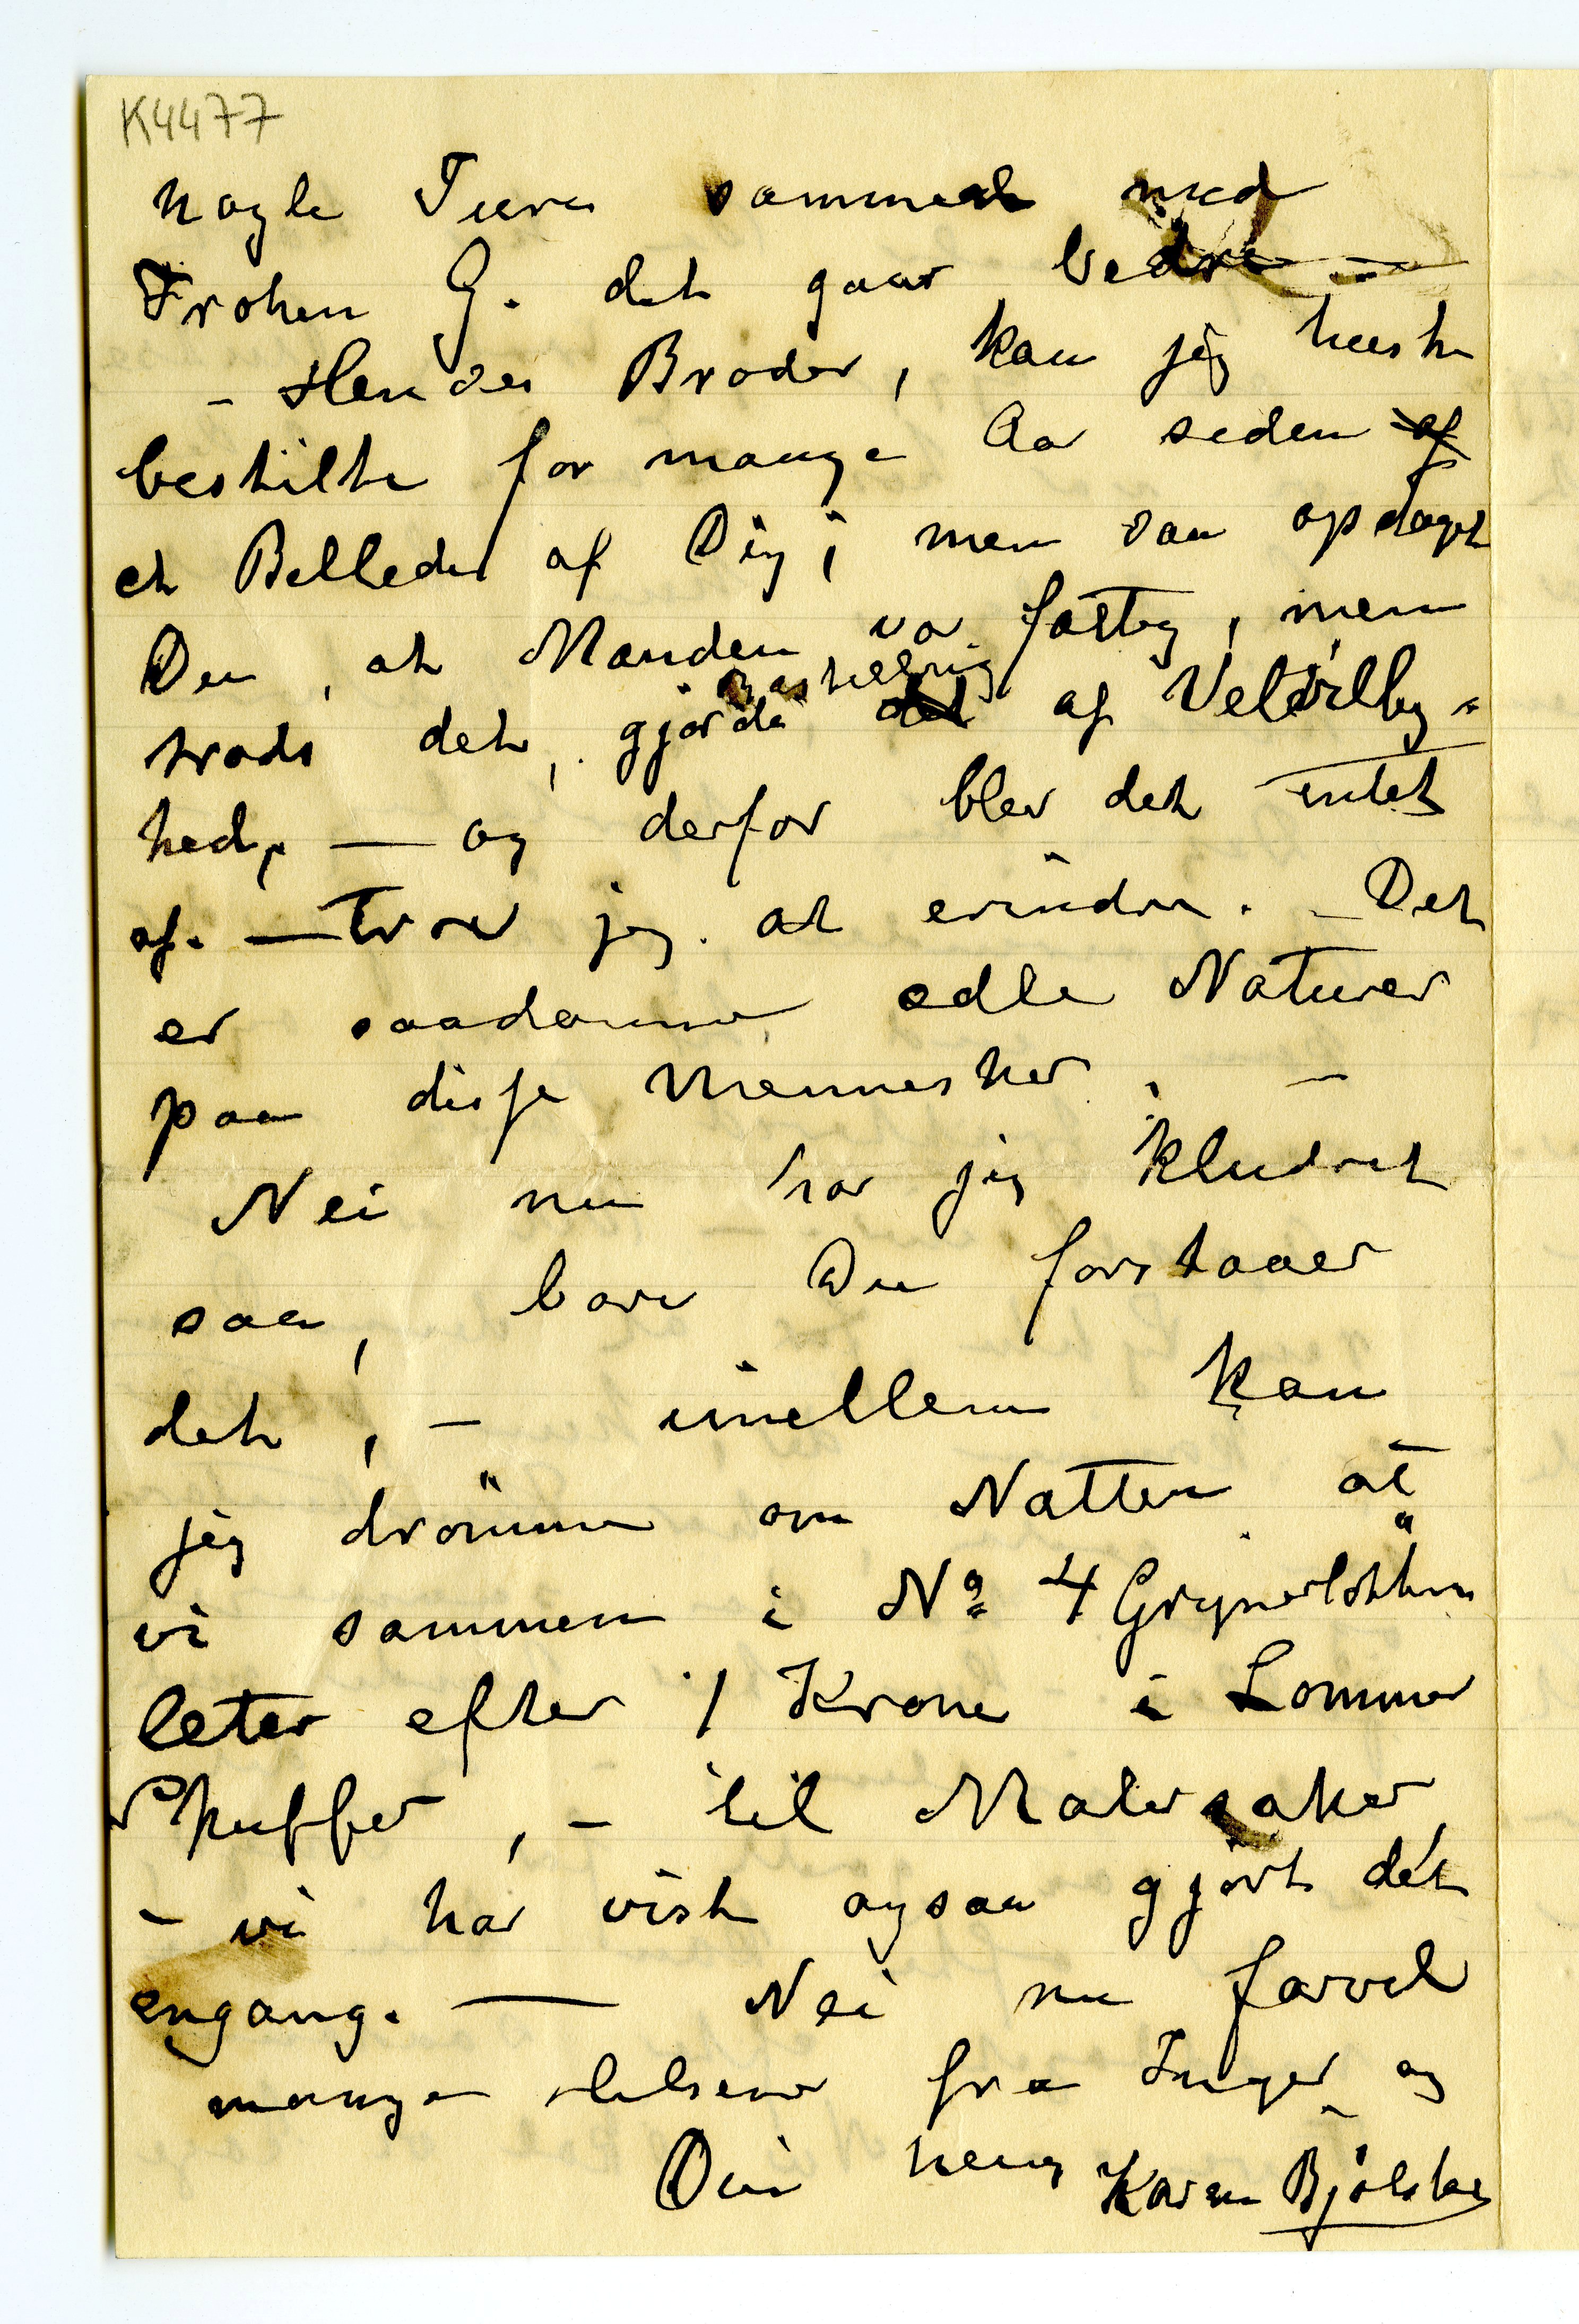 K4477
nogle Ture sammen med
Frøken G. det gaar bedre —
– Hendes Broder, kan jeg huske
bestilte for mange Aar siden af
et Billede af Dig; men saa opdaget
Du, at Manden va fattig, men
trods det, gjorde Bestilling det af Velvilly=
hed, — og derfor blev det intet
af. — Tror jeg at erindre. – Det
er saadanne ædle Naturer
paa disse Mennesker. –
Nei nu har jeg kludret
saa, bare Du forstaaer
det, – imellem kan
jeg drømme om Natten at
vi sammen i No 4 Grynerløkken
leter efter 1 Krone i Lommer
Skuffer, – til Malersaker
– vi har vist ogsaa gjørt dét
engang. — Nei nu farvel
mange Hilsener fra Inger og
Din heng Karen Bjølstad